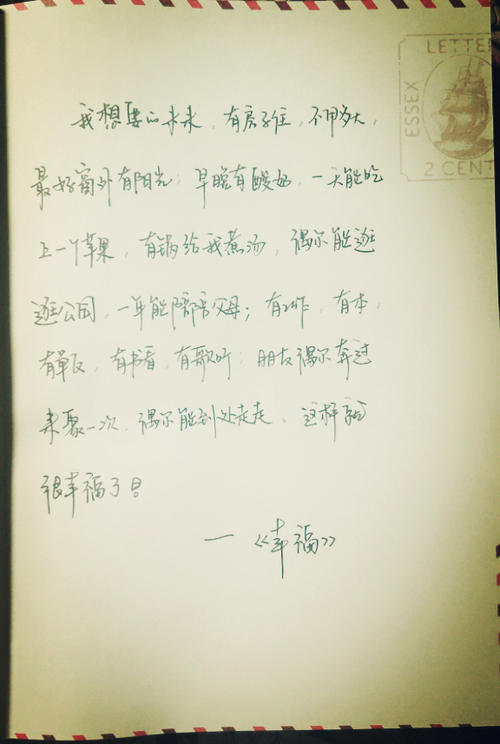 LETTER
ESSEX
2 CENT
我想要的未来，有房子住，不用多大，
最好窗外有阳光；早晚有酸奶，一天能吃
上一个苹果，有锅给我煮汤，偶尔能逛
逛公园，一年能陪陪父母；有，有本，
有单反，有书看，有歌听；朋友偶尔奔过
来聚一次，偶尔能到处走走，这样就
很幸福了。
— 《幸福》